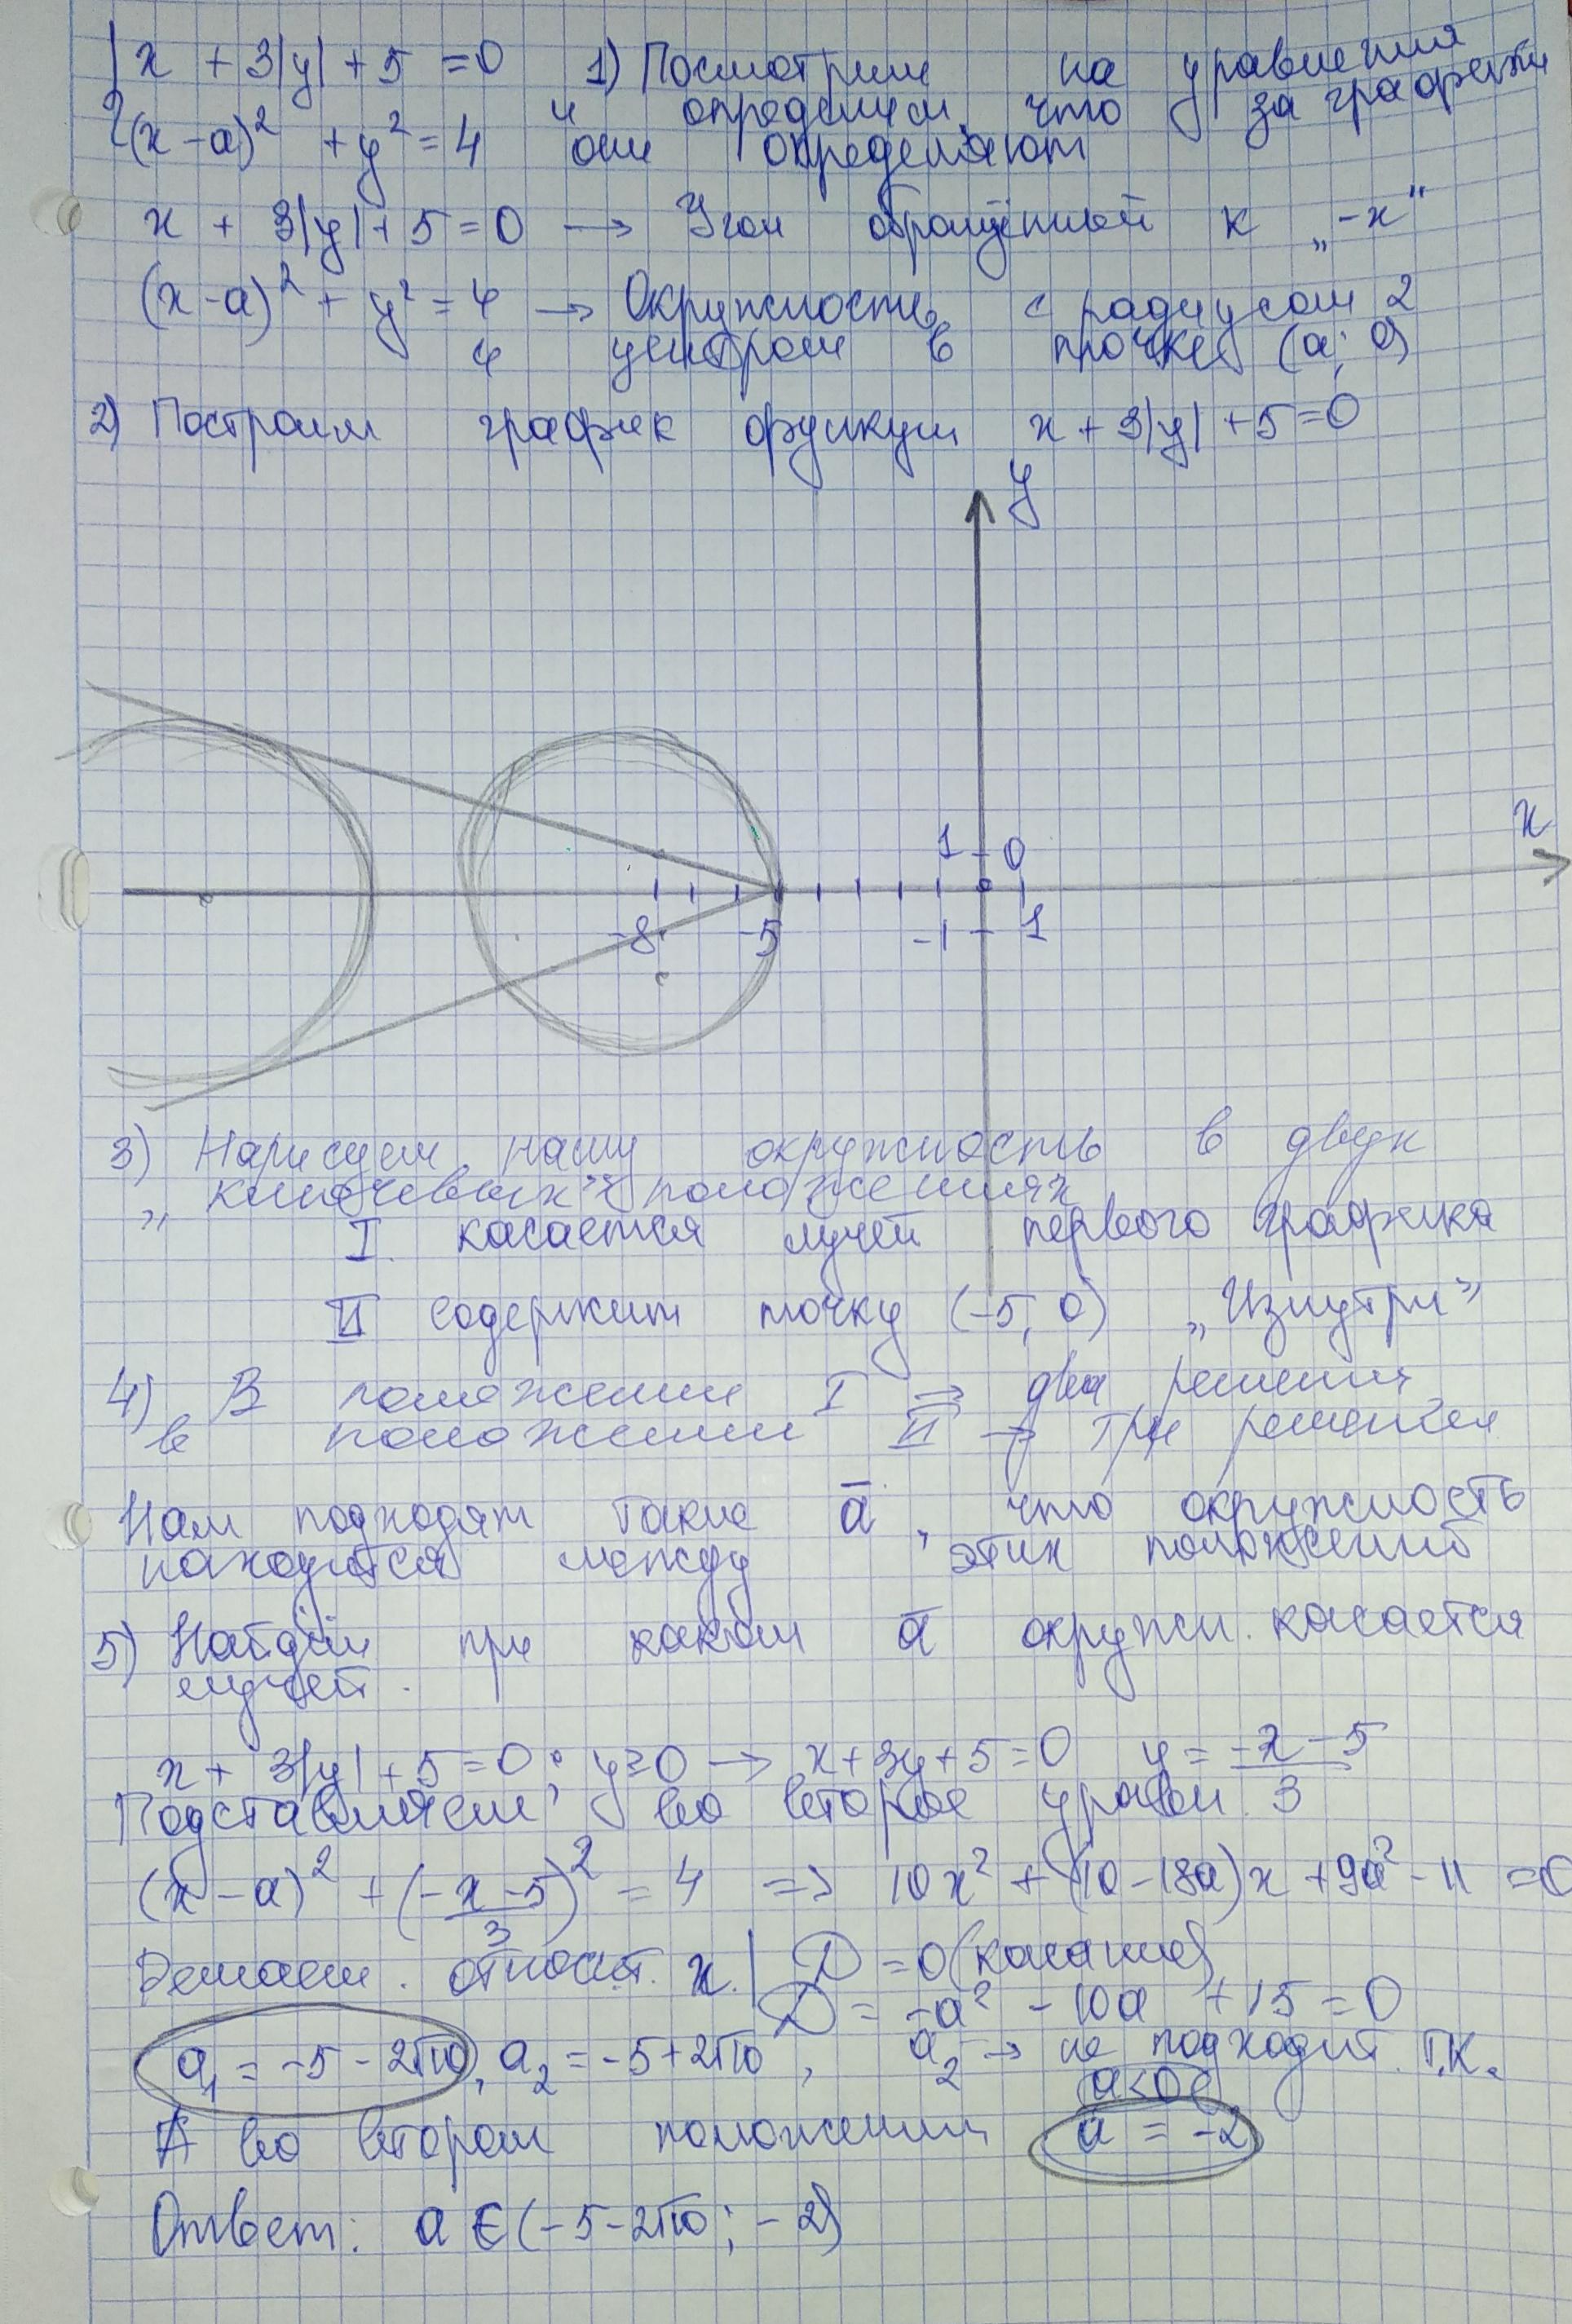 { x + 3|y| + 5 = 0 1) Посмотрим на уравнения
и определим, что за графики
(x-a)² + y² = 4 они определяют
x + 3|y| + 5 = 0 → Угол обращённый к „-x"
(x-a)² + y² = 4 → Окружность с радиусом 2
и центром в точке (a; 0)
2) Построим график функции x + 3|y| + 5 = 0
y
x
1 0
-8 -5 -1 1
3) Нарисуем нашу окружность в двух
„ключевых" положениях
I. касается лучей первого графика
II содержит точку (-5, 0) „Изнутри"
4) В положении I ⇒ два решения
в положении II → три решения
Нам подходят такие a, что окружность
находится между этих положений
5) Найдём при каком a окружн. касается
лучей.
x + 3|y| + 5 = 0; y ≥ 0 → x + 3y + 5 = 0 y = (-x-5)/3
Подставляем во второе уравн.
(x-a)² + ((-x-5)/3)² = 4 => 10x² + (10-18a)x + 9a² - 11 = 0
Решаем. относит. x. | D = 0 (касание)
D = -a² - 10a + 15 = 0
a₁ = -5 - 2√10, a₂ = -5 + 2√10, a₂ → не подходит т.к.
a < 0
А во втором положении a = -2
Ответ: a ∈ (-5-2√10; -2)